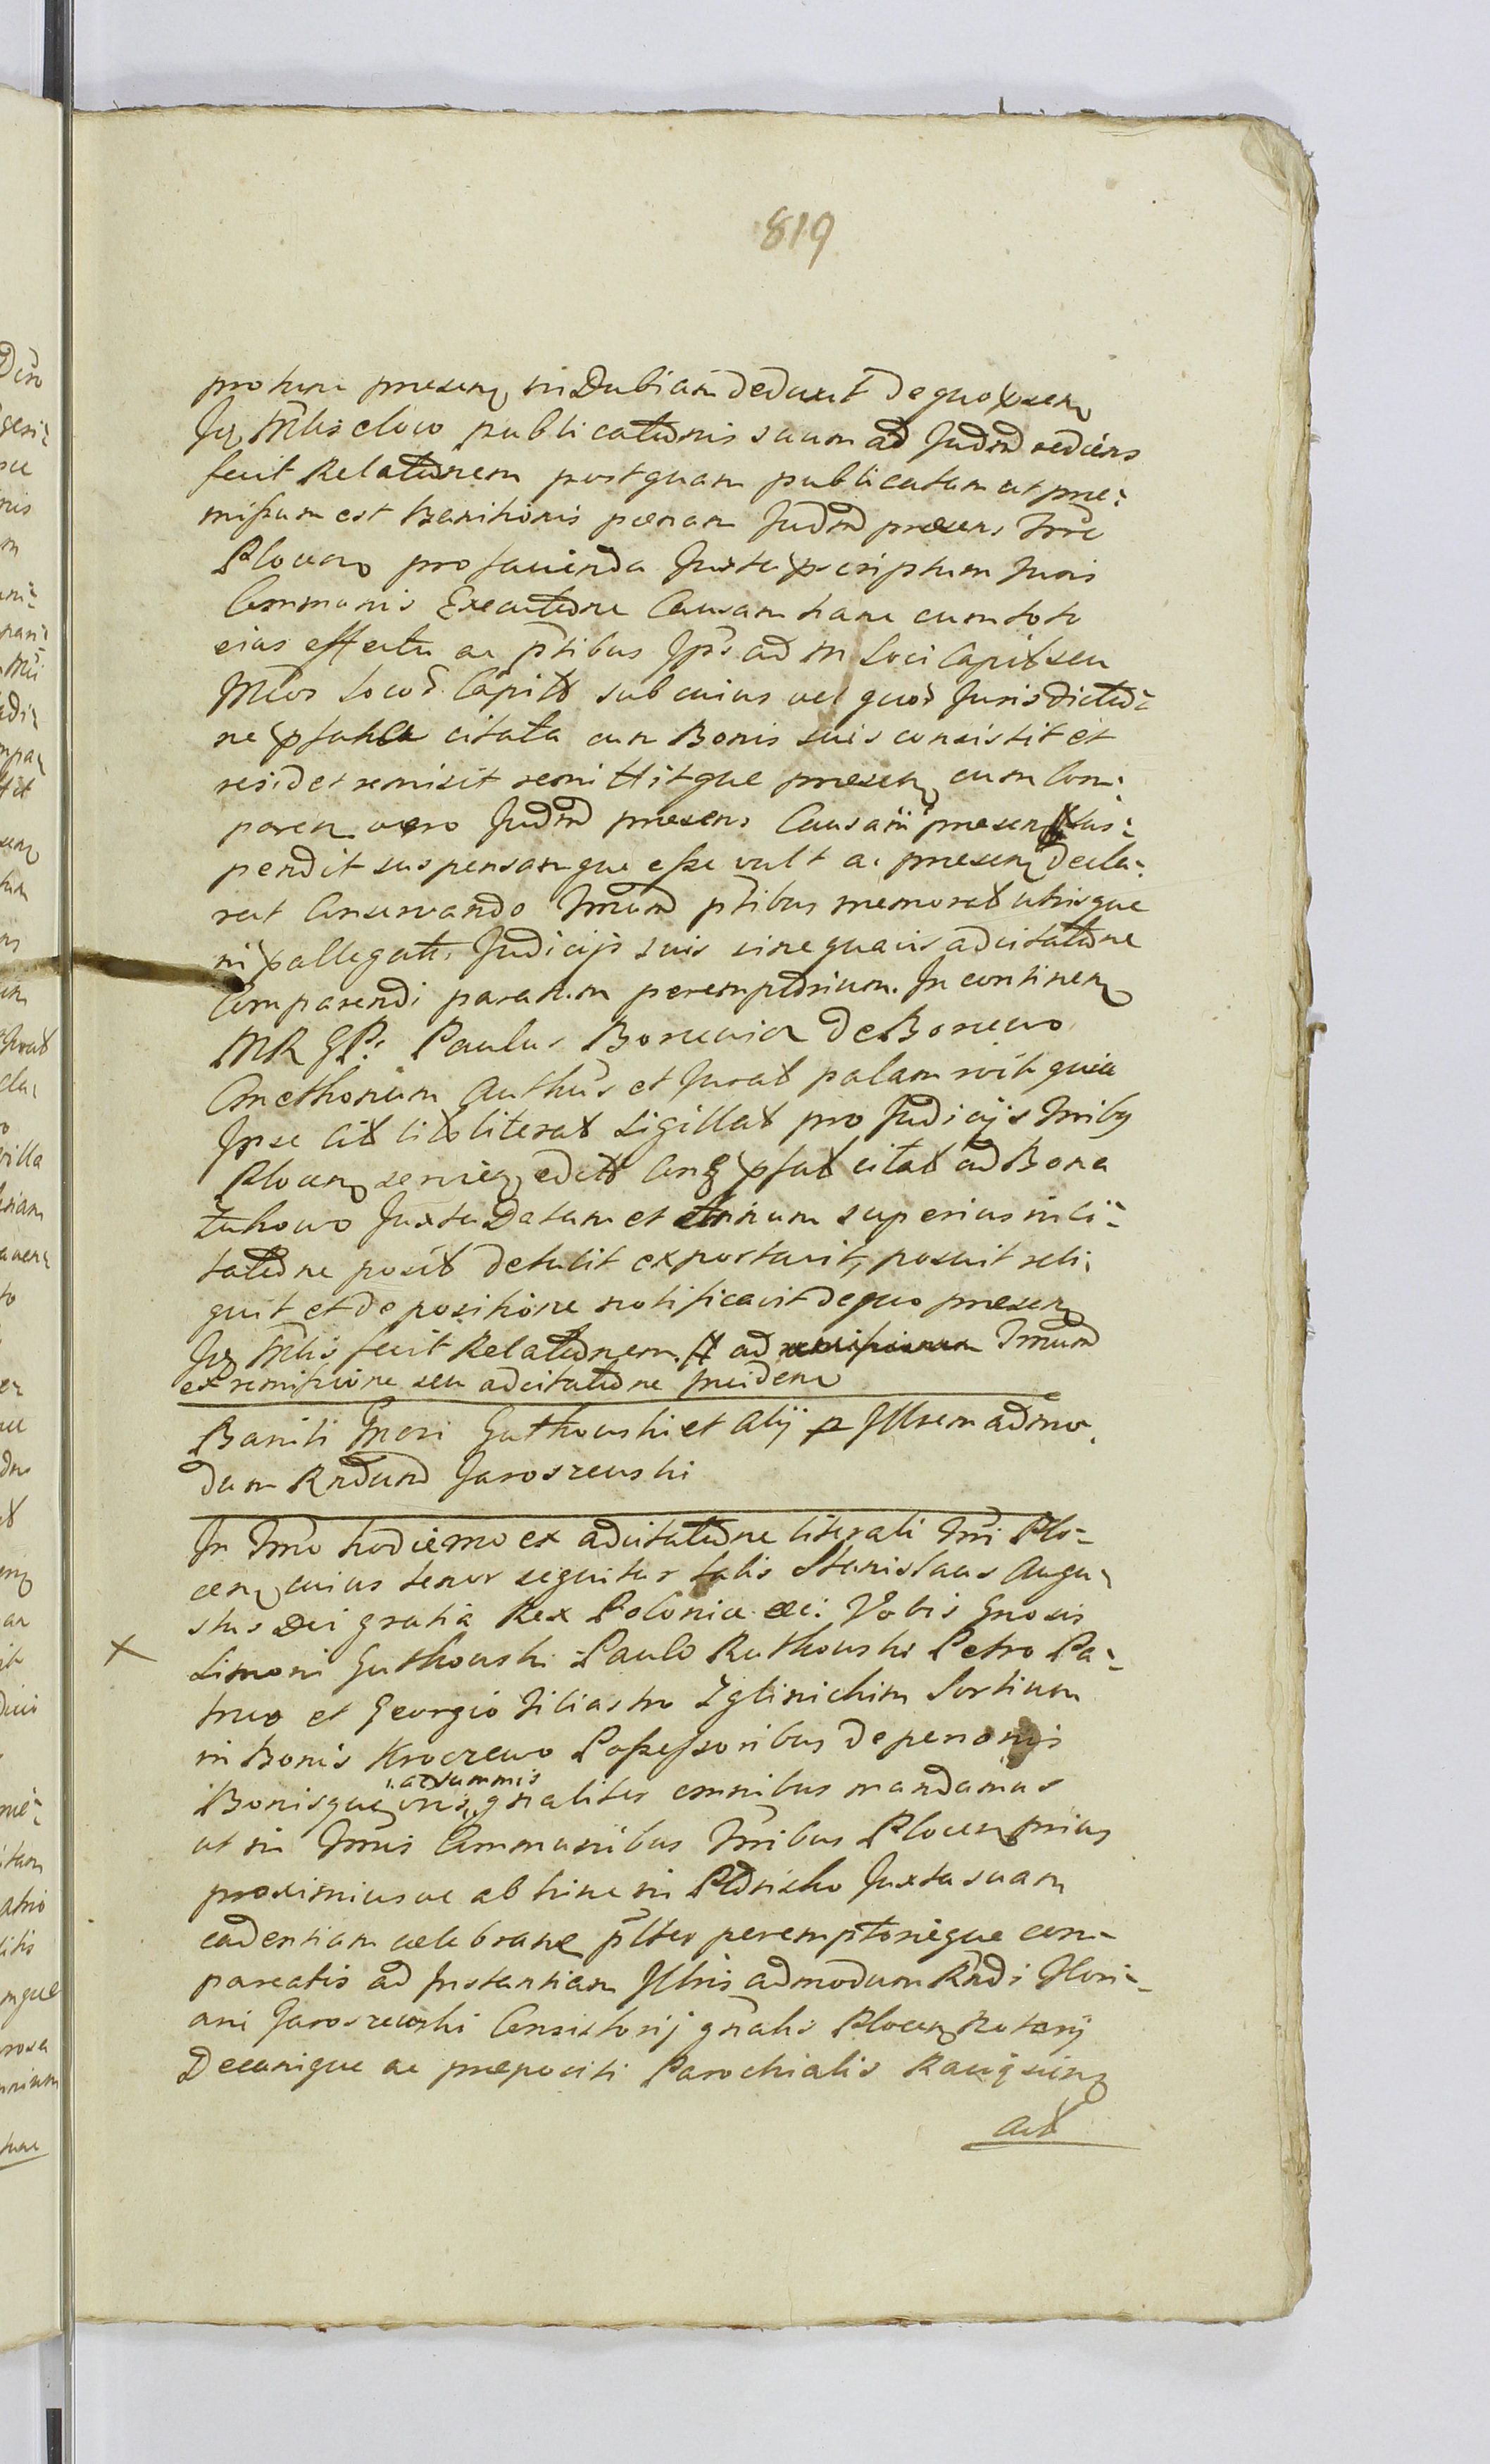 819
pro tunc presen in Dubiam deduxit de quo presen
Jg Mtlis eloco publicationis suum ad Judm rediens
fecit Relationem postquam publicatam ut pre:
missum est Banitionis pœnam Judm præsens Trre
Plocen pro facienda Juxta præscriptum Juris
Communis Executione Causam hanc cum toto
eius effectu ac ptibus Jpis ad M Loci Capit seu
Mcos Locor Capit sub cuius vel quor Jurisdictio=
ne pfata citata cum Bonis suis consistit et
residet remisit remittitque presen eum Com:
paren vero Judm presens Causam presen sus:
pendit suspensamque esse vult ac presen decla:
rat Conservando Tmum ptibus memorat utrisque
in allegat Judicijs suis sine quavis adcitatione
Comparendi paratum peremptorium. In continen
MR GP: Paulus Boncwicz de Boncwo
Cmethonum Auth et Jurat palam rcit quia
Jpse cit lit literat Sigillat pro Judicijs Trribg
Plocen servien edit Cong pfat citat ad Bona
Zukowo Juxta Datam et Tnum superius in ci=
tatione posit detulit exportavit, posuit reli:
quit et de positione notificavit de quo presen
Jg Mtlis fecit Relationem. ad Tmum
ex remissione seu adcitatione Jnciden
Baniti Gnosi Gutkowski et Alij p Jllrem admo.
dum Rndum Jaroszewski
In Tmo hodierno ex adcitatione literali Trri Plo=
cen cuius tenor sequitur talis Stanislaus Augu=
stus Dei gratia Rex Poloniæ &c: Vobis Gnosis
Simoni Gutkowski Paulo Rutkowski Petro Pa=
truo et Georgio filiastro Zglinickim Sortium
in Bonis Kroczewo Possessoribus de personis
Bonisque vris ac summis gnaliter omnibus mandamus
ut in Tmis Communibus Trribus Plocen prius
proximius ve ab hinc in Plonsko Juxta suam
cadentiam celebran plter peremptorieque com=
pareatis ad Jnstantiam Jllris admodum Rndi Flori=
ani Jaroszewski Consistorij gnalis Plocen Notarij
Decanique ac præpositi Parochialis Raciqsien
act